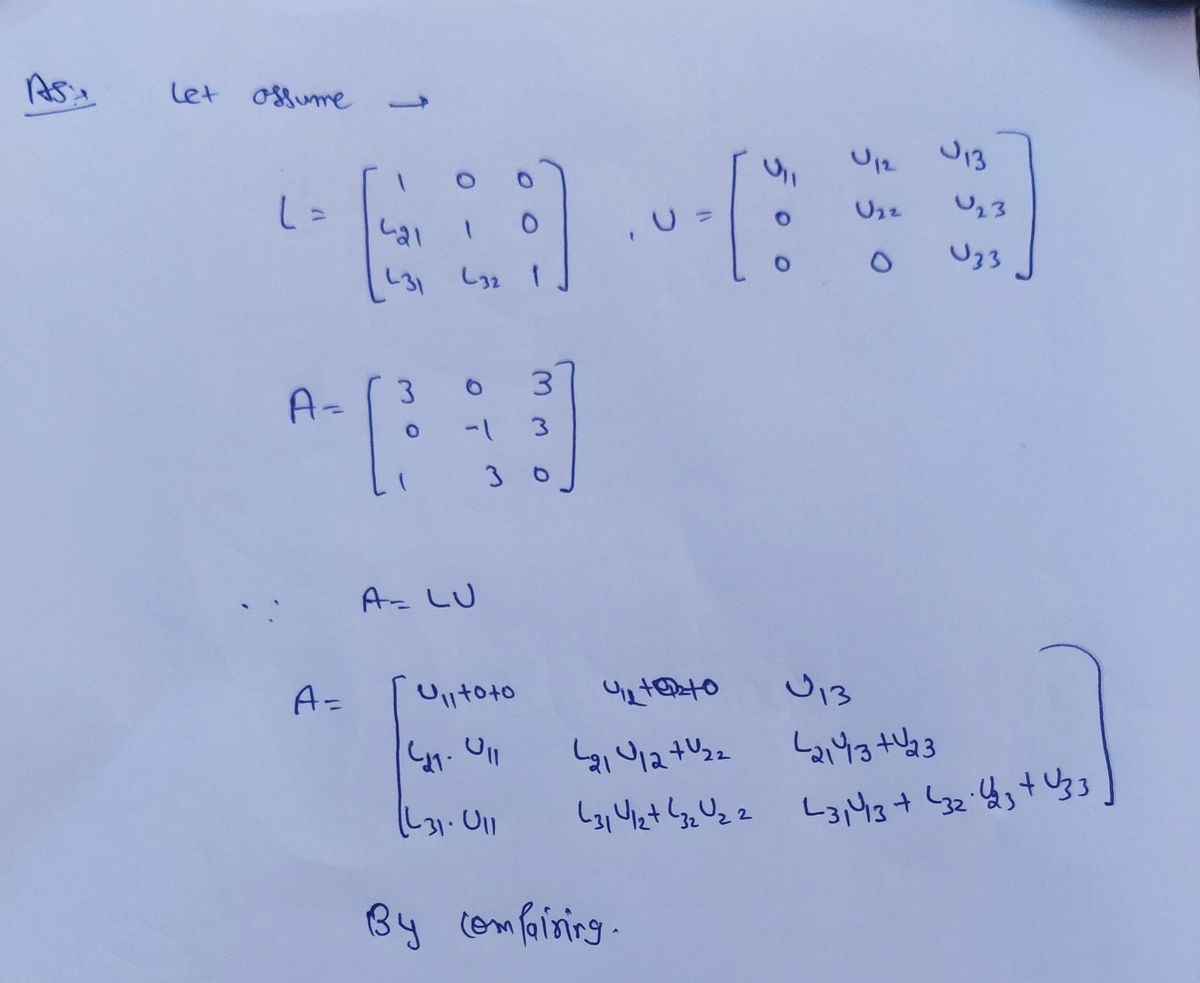 Let assume →
L = [ 1 0 0
L21 1 0
L31 L32 1 ] , U = [ U11 U12 U13
0 U22 U23
0 0 U33 ]
A = [ 3 0 3
0 -1 3
1 3 0 ]
∴ A = LU
A = [ U11+0+0 U12+0 U13
L21. U11 L21 U12 + U22 L21 U13 + U23
L31. U11 L31 U12 + L32 U22 L31 U13 + L32. U23 + U33 ]
By compairing.